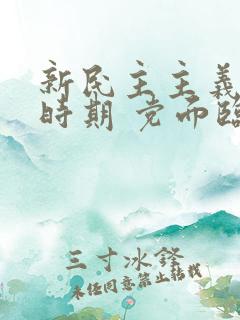 新民主主義
時期 党而臨
三寸冰鋒
未経同意禁止転載